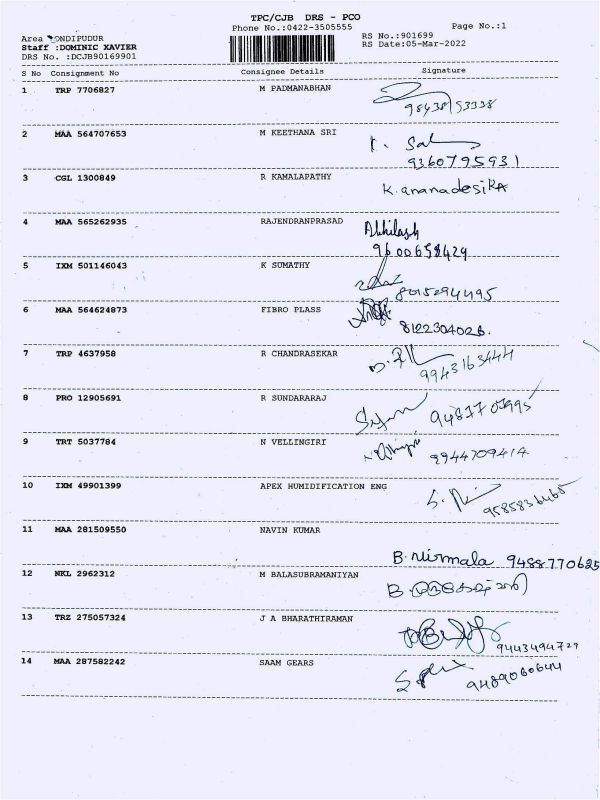 TPC/CJB DRS - PCO
Phone No.:0422-3505555 Page No.:1
Area ONDIPUDUR RS No.:901699
Staff :DOMINIC XAVIER RS Date:05-Mar-2022
DRS No. :DCJB90169901
S No Consignment No Consignee Details Signature
1 TRP 7706827 M PADMANABHAN
9843853338
2 MAA 564707653 M KEETHANA SRI
9360795931
3 CGL 1300849 R KAMALAPATHY K.gnanadesika
4 MAA 565262935 RAJENDRANPRASAD Abhilash
9600658429
5 IXM 501146043 K SUMATHY
8015294495
6 MAA 564624873 FIBRO PLASS
8122304028.
7 TRP 4637958 R CHANDRASEKAR
9943163444
8 PRO 12905691 R SUNDARARAJ
9 TRT 5037784 N VELLINGIRI
9944709414
10 IXM 49901399 APEX HUMIDIFICATION ENG
9585836465
11 MAA 281509550 NAVIN KUMAR
B. Nirmala 9488770625
12 NKL 2962312 M BALASUBRAMANIYAN
13 TRZ 275057324 J A BHARATHIRAMAN
9443494729
14 MAA 287582242 SAAM GEARS
9489060644